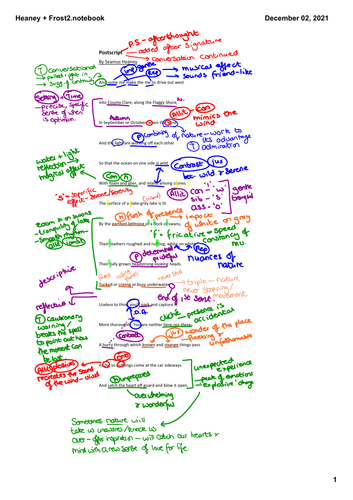 Heaney + Frost2.notebook
December 02, 2021
P.S - afterthought
Postscript
added after signature
By Seamus Heaney
conversation continued
T Conversational
pulled right in
And some time make the time to drive out west
musical effect
sounds friend-like
Setting + Time
- precise, specific
sense of when
is optimum.
Into County Clare, along the Flaggy Shore,
Allit + Con
mimics the
wind
Autumn
In September or October, when the wind
And the light are working off each other
combining of nature - work to
its advantage
T admiration
water + light
reflection
magical effect
So that the ocean on one side is wild
Contrast
btw wild + serene
With foam and glitter, and inland among stones
"S" - soporific
effect - serene/serenity
Allit
Con
sib - 's'
ass - 'o'
gentle
tranquil
The surface of a slate-grey lake is lit
zoom in on swans
M flash of presence
impact
of white on grey
By the earthed lightning of a flock of swans,
'F' - fricative = speed
constancy of
Their feathers roughed and ruffling, white on white,
P determined
Rep
nuances of
nature
Their fully grown headstrong-looking heads
descriptive
Tucked or cresting or busy underwater.
triple - nature
never stopping/
movement
end of 1st sent.
reflective
Useless to think you'll park and capture it
D.A.
cliché - presence is
accidental
T Cautionary
warning /
breaks the spell
to point out how
the moment can
be lost
More thoroughly. You are neither here nor there,
Contrast
wonder of the place
- fleeting
unfathomable
A hurry through which known and strange things pass
recreates the sound
of the wind
As big soft buffetings come at the car sideways
unexpected
experience
- mix of emotions
explosive 'bang'
P unprepared
And catch the heart off guard and blow it open.
overwhelming
+ wonderful
Sometimes nature will
take us unawares/knock us
over - offer inspiration - will catch our hearts +
mind with a new sense of love for life.
1